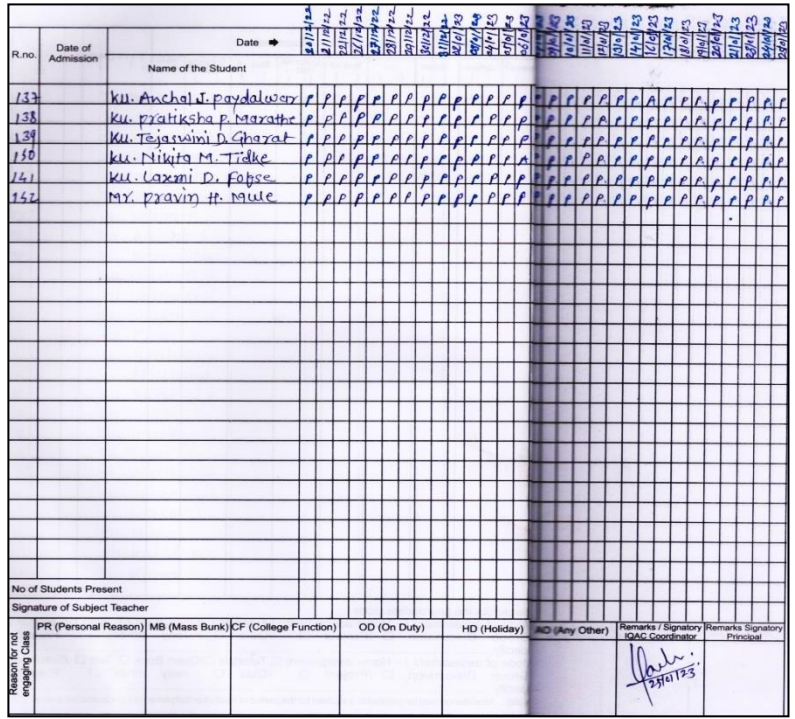 R.no.
Date of Admission
Date ➔
Name of the Student
20/12/22 21/12/22 22/12/22 27/12/22 28/12/22 29/12/22 30/12/22 31/12/22 02/01/23 05/01/23 06/01/23 09/01/23 10/01/23 11/01/23 12/01/23 13/01/23 14/01/23 16/01/23 17/01/23 18/01/23 19/01/23 20/01/23 21/01/23 23/01/23 24/01/23 25/01/23
137 Ku. Anchal J. paydalwar P P P P P P P P P P P P P P P P P P P A P P P P P P P P
138 Ku. pratiksha P. Marathe P P P P P P P P P P P P P P P P P P A P P P P P P P P P
139 Ku. Tejaswini D. Gharat P P P P P P P P P P P P P P P P P P P P P P P P P P P P
150 Ku. Nikita M. Tidke P P P P P P P P P P P P P A P P P P P P P P P P P P P P
141 Ku. Laxmi D. Fopse P P P P P P P P P P P P P P P P P P P P P P P P P P P P
152 Mr. pravin H. Mule P P P P P P P P P P P P P P P P P P P P P P P P P P P P
No of Students Present
Signature of Subject Teacher
Reason for not engaging Class
PR (Personal Reason) MB (Mass Bunk) CF (College Function) OD (On Duty) HD (Holiday) AO (Any Other) Remarks / Signatory IQAC Coordinator Remarks Signatory Principal
25/01/23